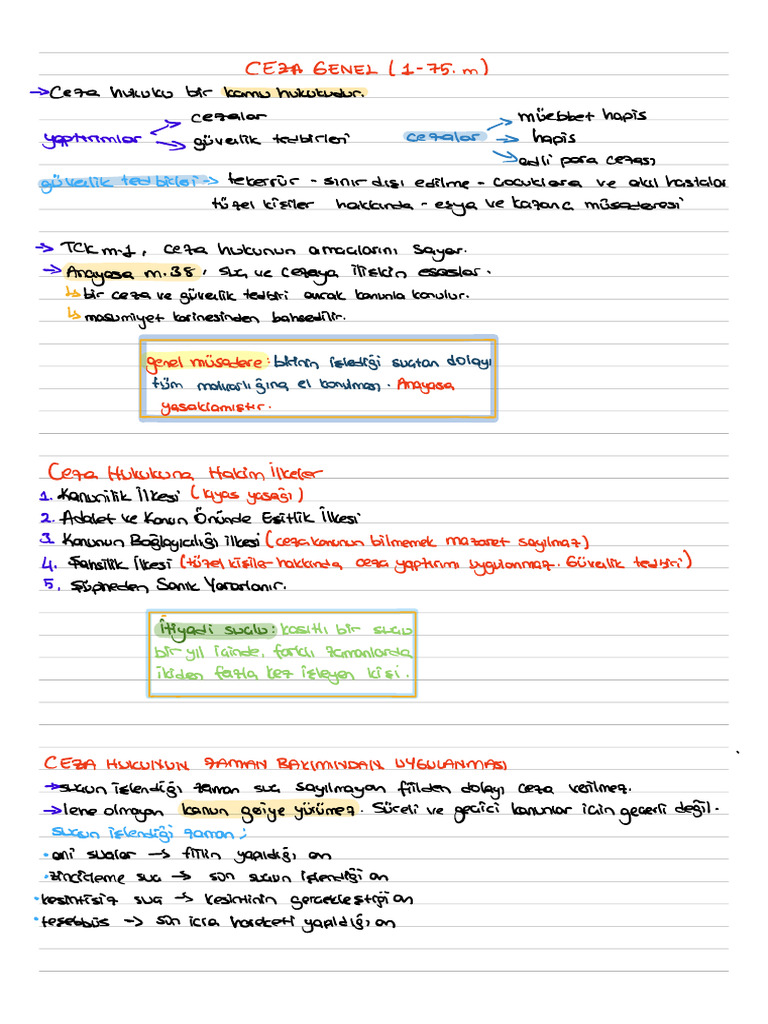 CEZA GENEL (1-75. m)
→ Ceza hukuku bir kamu hukukudur.
yaptırımlar → cezalar
→ güvenlik tedbirleri
cezalar → müebbet hapis
→ hapis
→ adli para cezası
güvenlik tedbirleri → tekerrür - sınır dışı edilme - çocuklara ve akıl hastalar
tüzel kişiler hakkında - eşya ve kazanç müsaderesi
→ TCK m.1, ceza hukunun amaçlarını sayar.
→ Anayasa m.38, suç ve cezaya ilişkin esaslar.
↳ bir ceza ve güvenlik tedbiri ancak kanunla konulur.
↳ masumiyet karinesinden bahsedilir.
genel müsadere: birinin işlediği suçtan dolayı
tüm malvarlığına el konulması. Anayasa
yasaklamıştır.
Ceza Hukukuna Hakim İlkeler
1. Kanunilik İlkesi (kıyas yasağı)
2. Adalet ve Kanun Önünde Eşitlik İlkesi
3. Kanunun Bağlayıcılığı ilkesi (ceza kanunun bilmemek mazaret sayılmaz)
4. Şahsilik İlkesi (tüzel kişiler hakkında ceza yaptırımı uygulanmaz. Güvenlik tedbiri)
5. Şüpheden Sanık Yararlanır.
İtiyadi suçlu: kasıtlı bir suçu
bir yıl içinde, farklı zamanlarda
ikiden fazla kez işleyen kişi.
CEZA HUKUNUN ZAMAN BAKIMINDAN UYGULANMASI
→ suçun işlendiği zaman suç sayılmayan fiilden dolayı ceza verilmez.
→ lene olmayan kanun geriye yürümez. Süreli ve geçici kanunlar için geçerli değil.
suçun işlendiği zaman;
• ani suçlar → fiilin yapıldığı an
• zincirleme suç → son suçun işlendiği an
• kesintisiz suç → kesintinin gerçekleştiği an
• teşebbüs → son icra hareketi yapıldığı an